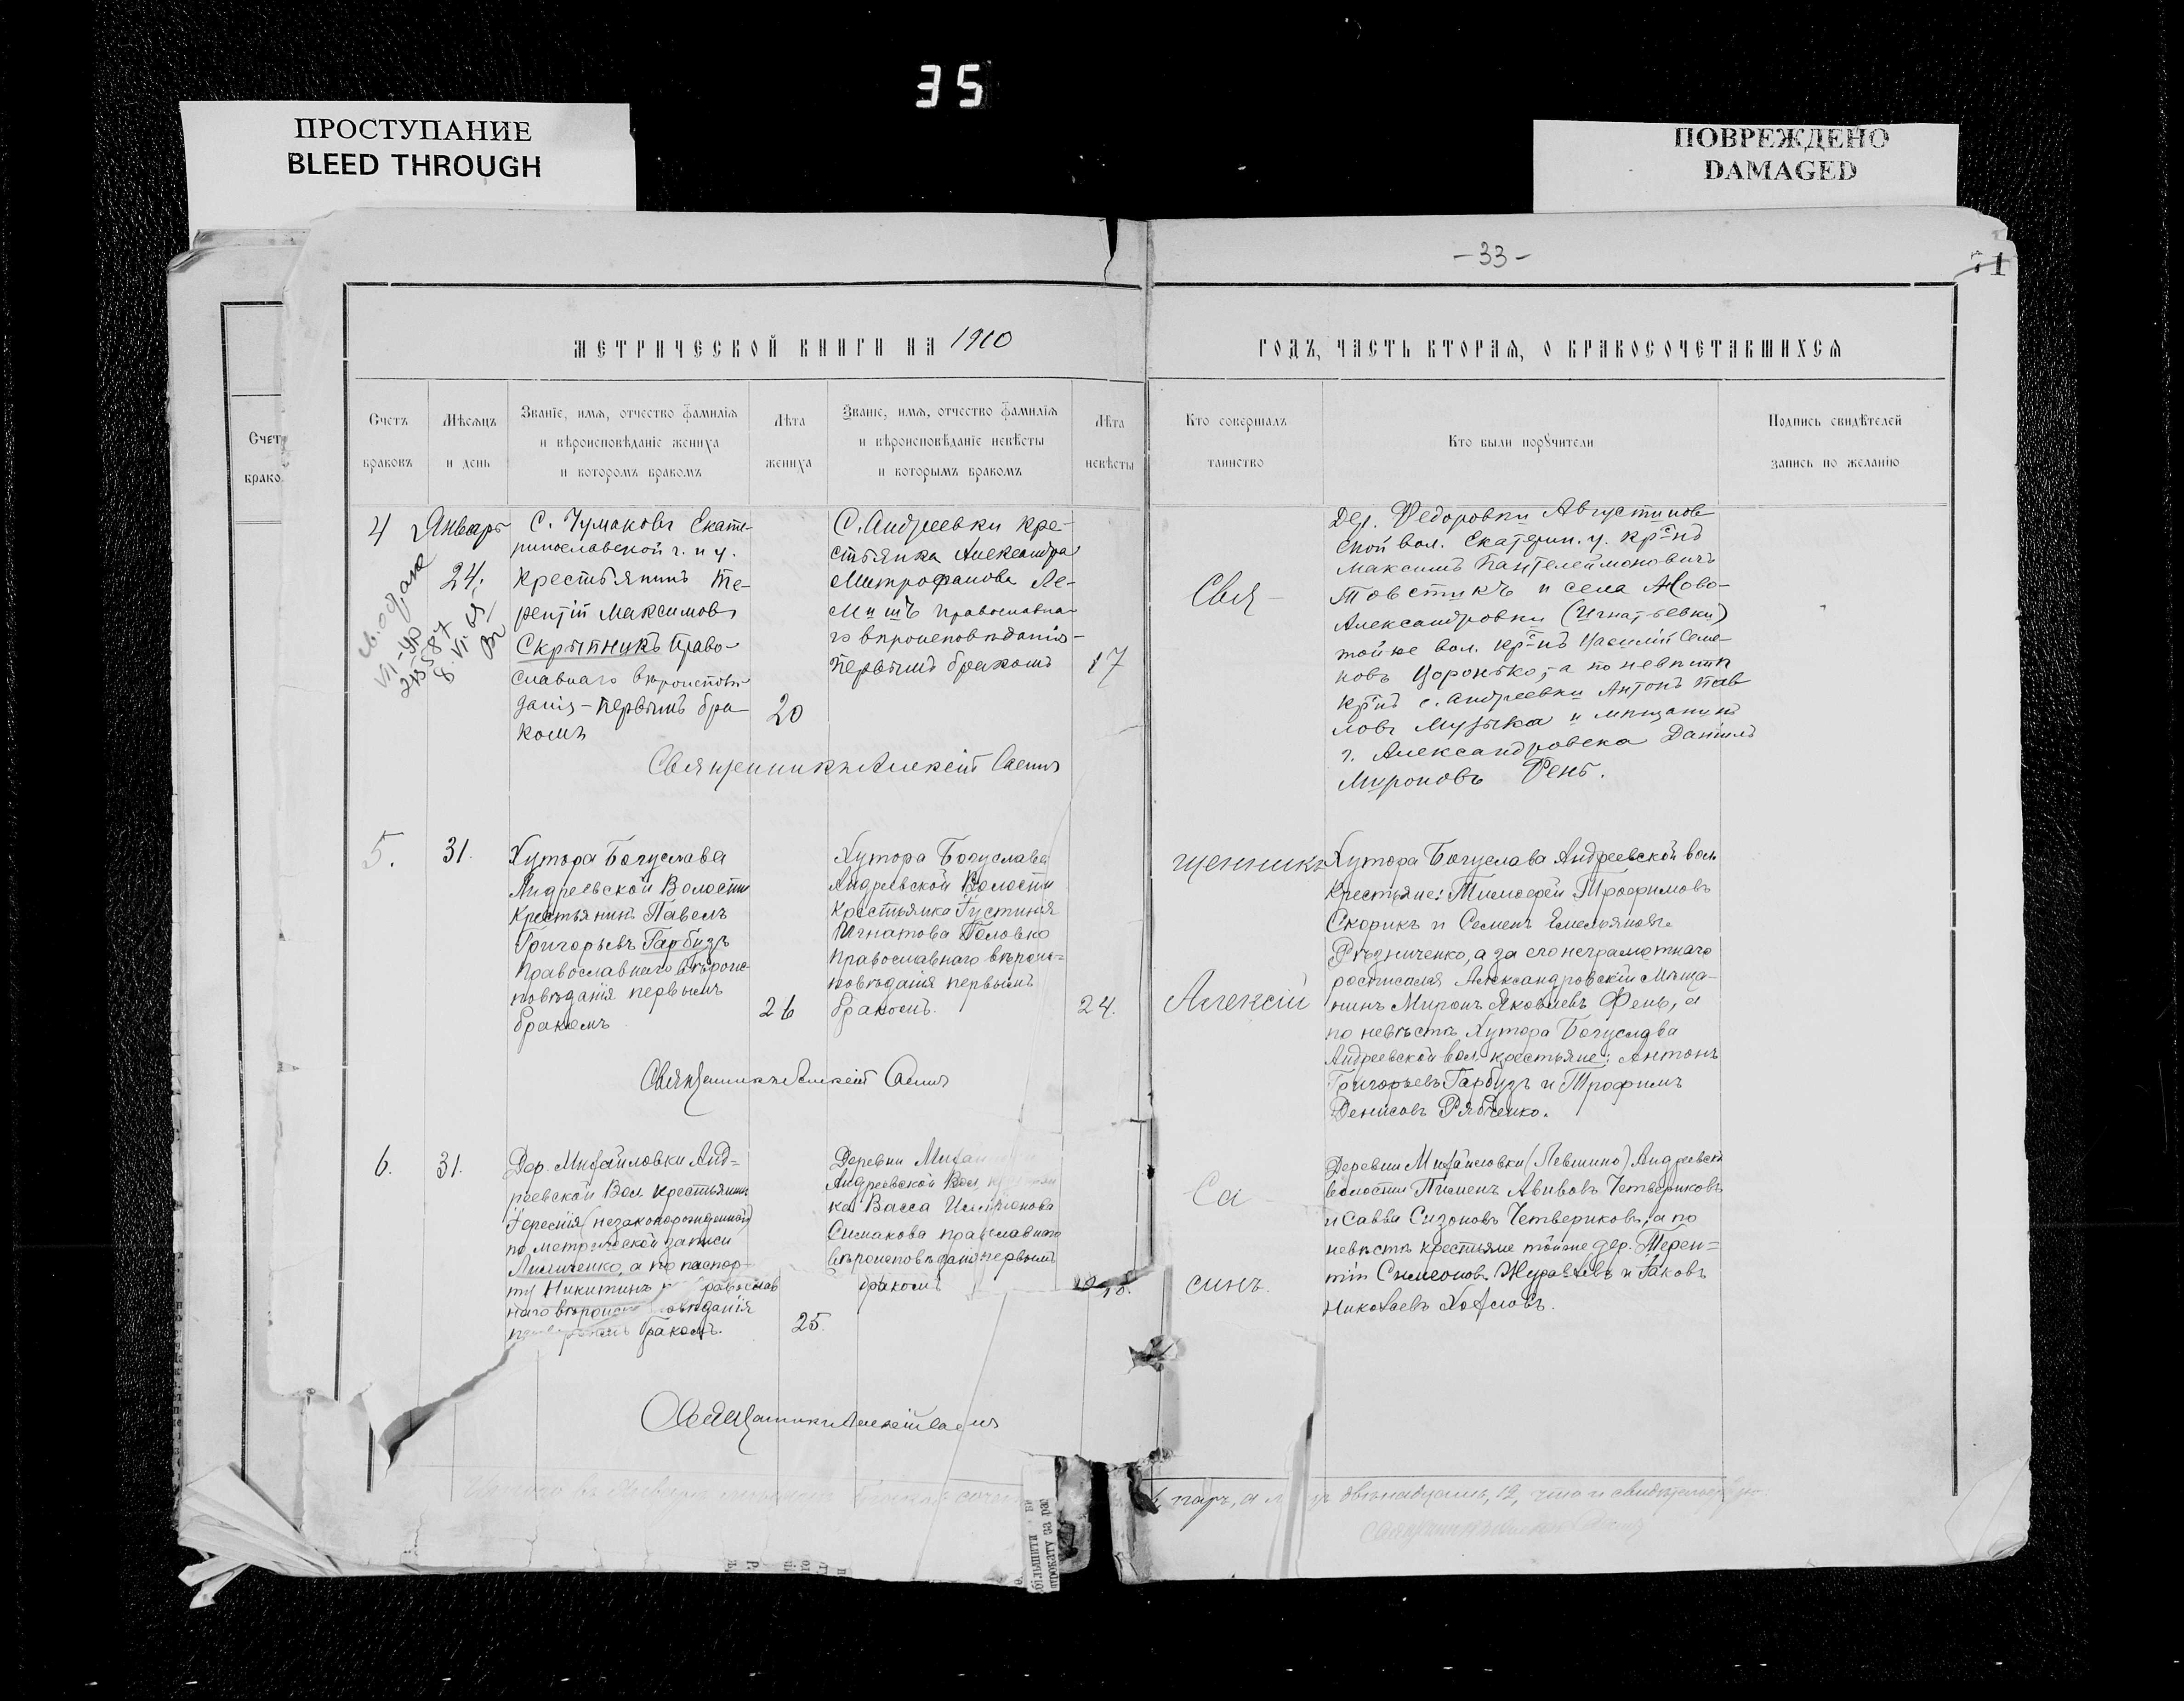 35
ПРОСТУПАНИЕ
BLEED THROUGH
ПОВРЕЖДЕНО
DAMAGED
-33-
МЕТРИЧЕСКОЙ КНИГИ НА 1910
ГОДЪ, ЧАСТЬ ВТОРАЯ, О БРАКОСОЧЕТАВШИХСЯ
Счетъ
браковъ
Мѣсяцъ
и день
Званіе, имя, отчество фамилія
и вѣроисповѣданіе жениха
и которомъ бракомъ
Лѣта
жениха
Званіе, имя, отчество фамилія
и вѣроисповѣданіе невѣсты
и которымъ бракомъ
Лѣта
невѣсты
Кто совершалъ
таинство
Кто были поручители
Подпись свидѣтелей
запись по желанію
4
Январь
24.
С. Чумаковъ Екате-
ринославской г. и у.
крестьянинъ Те-
рентій Максимовъ
Скрыпникъ право-
славнаго вѣроисповѣ-
данія - первымъ бра-
комъ
20
С. Андреевки кре-
стьянка Александра
Митрофанова Ле-
мишъ православна-
го вѣроисповѣданія -
первымъ бракомъ
17
Священникъ Алексій
Дер. Федоровки Августинов
ской вол. Екатерин. у. кр-нъ
Максимъ Пантелеймоновичъ
Товстикъ и села Ново-
Александровки (Игнатьевки)
той-же вол. кр-нъ Василій Семе-
новъ а по невѣстѣ
кр-нъ с. Андреевки Антонъ Пав
ловъ Музыка и мѣщанинъ
г. Александровска Даніилъ
Мироновъ Фень.
5.
31.
Хутора Богуслава
Андреевской Волости
Крестьянинъ Павелъ
Григорьевъ Гарбузъ
Православнаго вѣроис-
повѣданія первымъ
бракомъ
26
Хутора Богуслава
Андреевской Волости
крестьянка Густиния
Игнатова Головко
Православнаго вѣроис=
повѣданія первымъ
бракомъ.
24.
Священникъ Алексій
Свя-
щенникъ
Алексій
Са-
Хутора Богуслава Андреевской вол.
Крестьяне: Тимофей Трофимовъ
Скорикъ и Семенъ Емельяновъ
Рѣзниченко, а за его неграмотнаго
росписался Александровскій Мѣща-
нинъ Миронъ Яковлевъ Фень, а
по невѣстѣ Хутора Богуслава
Андреевской вол. крестьяне: Антонъ
Григорьевъ Гарбузъ и Трофимъ
Денисовъ Рябченко.
6.
31.
Дер. Михайловки Анд=
реевской Вол. крестьянинъ
(незаконорожденный)
по метрической записи
а по паспор-
ту Никитинъ
бракомъ.
25
Деревни
Андреевской Вол.
ка Васса
Симакова православнаго
вѣроисповѣданія первымъ
бракомъ
18.
Священникъ Алексій
Деревни Михайловки (Левшино) Андреевской
волости Пименъ Авивовъ Четвериковъ
и Савва Сизоновъ Четвериковъ, а по
невѣстѣ крестьяне той же дер. Терен=
тій Симеоновъ Журавлевъ и Іаковъ
Николаевъ
паръ, а двѣнадцать, 12, что и